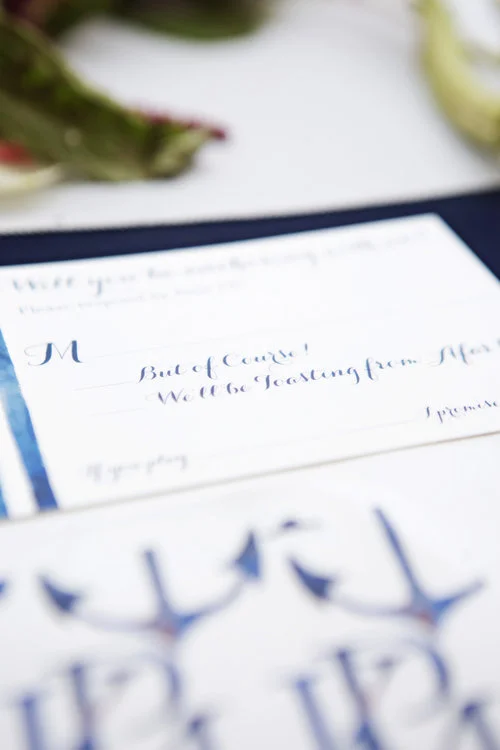 Will you be anchoring with us?
Please respond by
M
But of Course!
We'll be Toasting from Afar
I promise
If you play